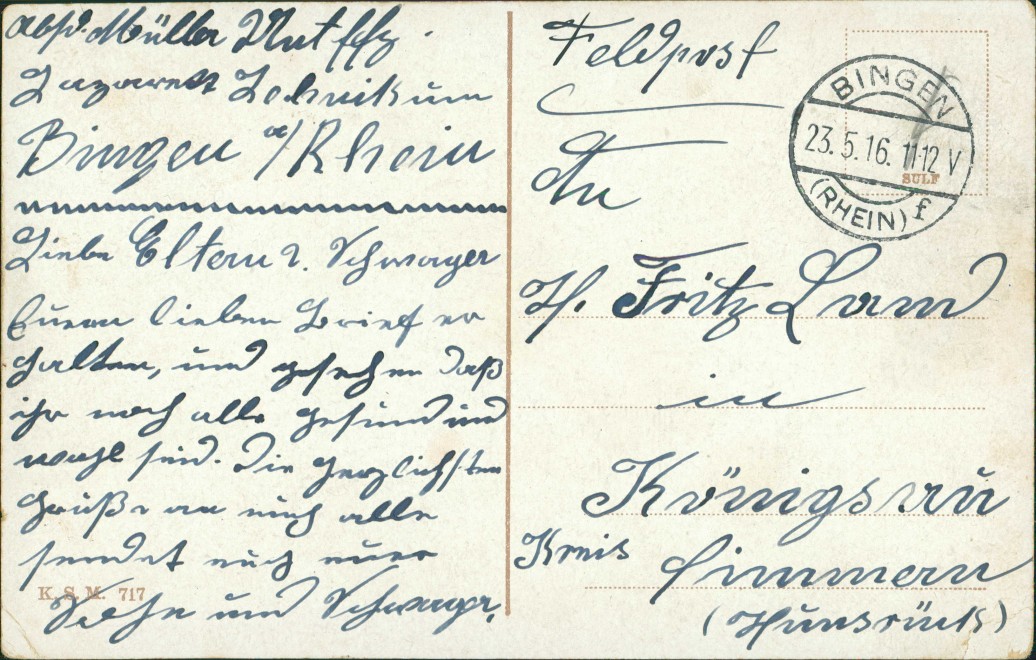 Abs. Müller Untffz.
Lazarett Technikum
Bingen a/Rhein
Liebe Eltern u. Schwager
Euren lieben Brief er
halten, und gesehen daß
ihr noch alle gesund und
wohl seid. Die herzlichsten
Grüße an euch alle
sendet euch euer
Sohn und Schwager.
K. S. M. 717
Feldpost
An
H. Fritz Lamd
in
Königsau
Kreis Simmern
(Hunsrück)
BINGEN
23.5.16. 11-12 V
(RHEIN) f
SULF